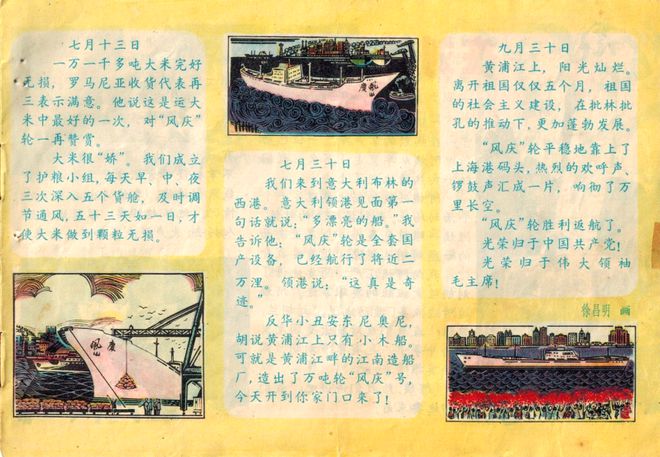 七月十三日
一万一千多吨大米完好
无损，罗马尼亚收货代表再
三表示满意。他说这是运大
米中最好的一次，对“风庆”
轮一再赞赏。
大米很“娇”。我们成立
了护粮小组，每天早、中、夜
三次深入五个货舱，及时调
节通风，五十三天如一日，才
使大米做到颗粒无损。
風慶
風慶
七月三十日
我们来到意大利布林的
西港。意大利领港见面第一
句话就说：“多漂亮的船。”我
告诉他：“风庆”轮是全套国
产设备，已经航行了将近二
万浬。领港说：“这真是奇
迹。”
反华小丑安东尼奥尼，
胡说黄浦江上只有小木船。
可就是黄浦江畔的江南造船
厂，造出了万吨轮“风庆”号，
今天开到你家门口来了！
九月三十日
黄浦江上，阳光灿烂。
离开祖国仅仅五个月，祖国
的社会主义建设，在批林批
孔的推动下，更加蓬勃发展。
“风庆”轮平稳地靠上了
上海港码头，热烈的欢呼声、
锣鼓声汇成一片，响彻了万
里长空。
“风庆”轮胜利返航了。
光荣归于中国共产党！
光荣归于伟大领袖
毛主席！
徐昌明 画